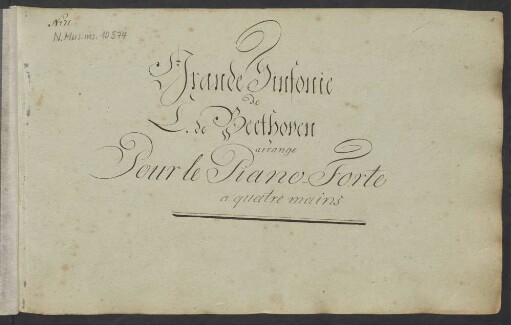 N. Mus. ms. 10 574
Grande Sinfonie
de
L. de Beethoven
arrangé
Pour le Piano-Forte
a quatre mains